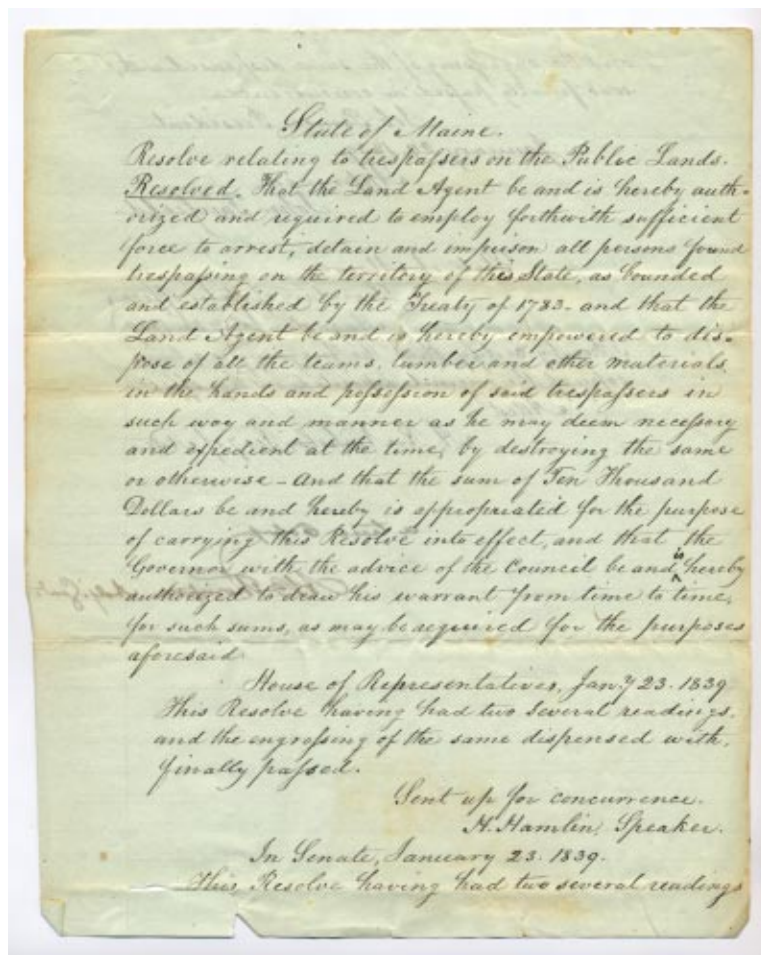 State of Maine.
Resolve relating to trespassers on the Public Lands.
Resolved. That the Land Agent be and is hereby auth-
orized and required to employ forthwith sufficient
force to arrest, detain and imprison all persons found
trespassing on the territory of this State, as bounded
and established by the Treaty of 1783. and that the
Land Agent be and is hereby empowered to dis-
pose of all the teams, lumber and other materials
in the hands and possession of said trespassers in
such way and manner as he may deem necessary
and expedient at the time, by destroying the same
or otherwise - And that the sum of Ten Thousand
Dollars be and hereby is appropriated for the purpose
of carrying this Resolve into effect, and that the
Governor with the advice of the Council be and is hereby
authorized to draw his warrant from time to time,
for such sums, as may be required for the purposes
aforesaid.
House of Representatives, Jany 23. 1839
This Resolve having had two several readings,
and the engrossing of the same dispensed with,
finally passed.
Sent up for concurrence.
H. Hamlin, Speaker.
In Senate, January 23. 1839.
This, Resolve having had two several readings